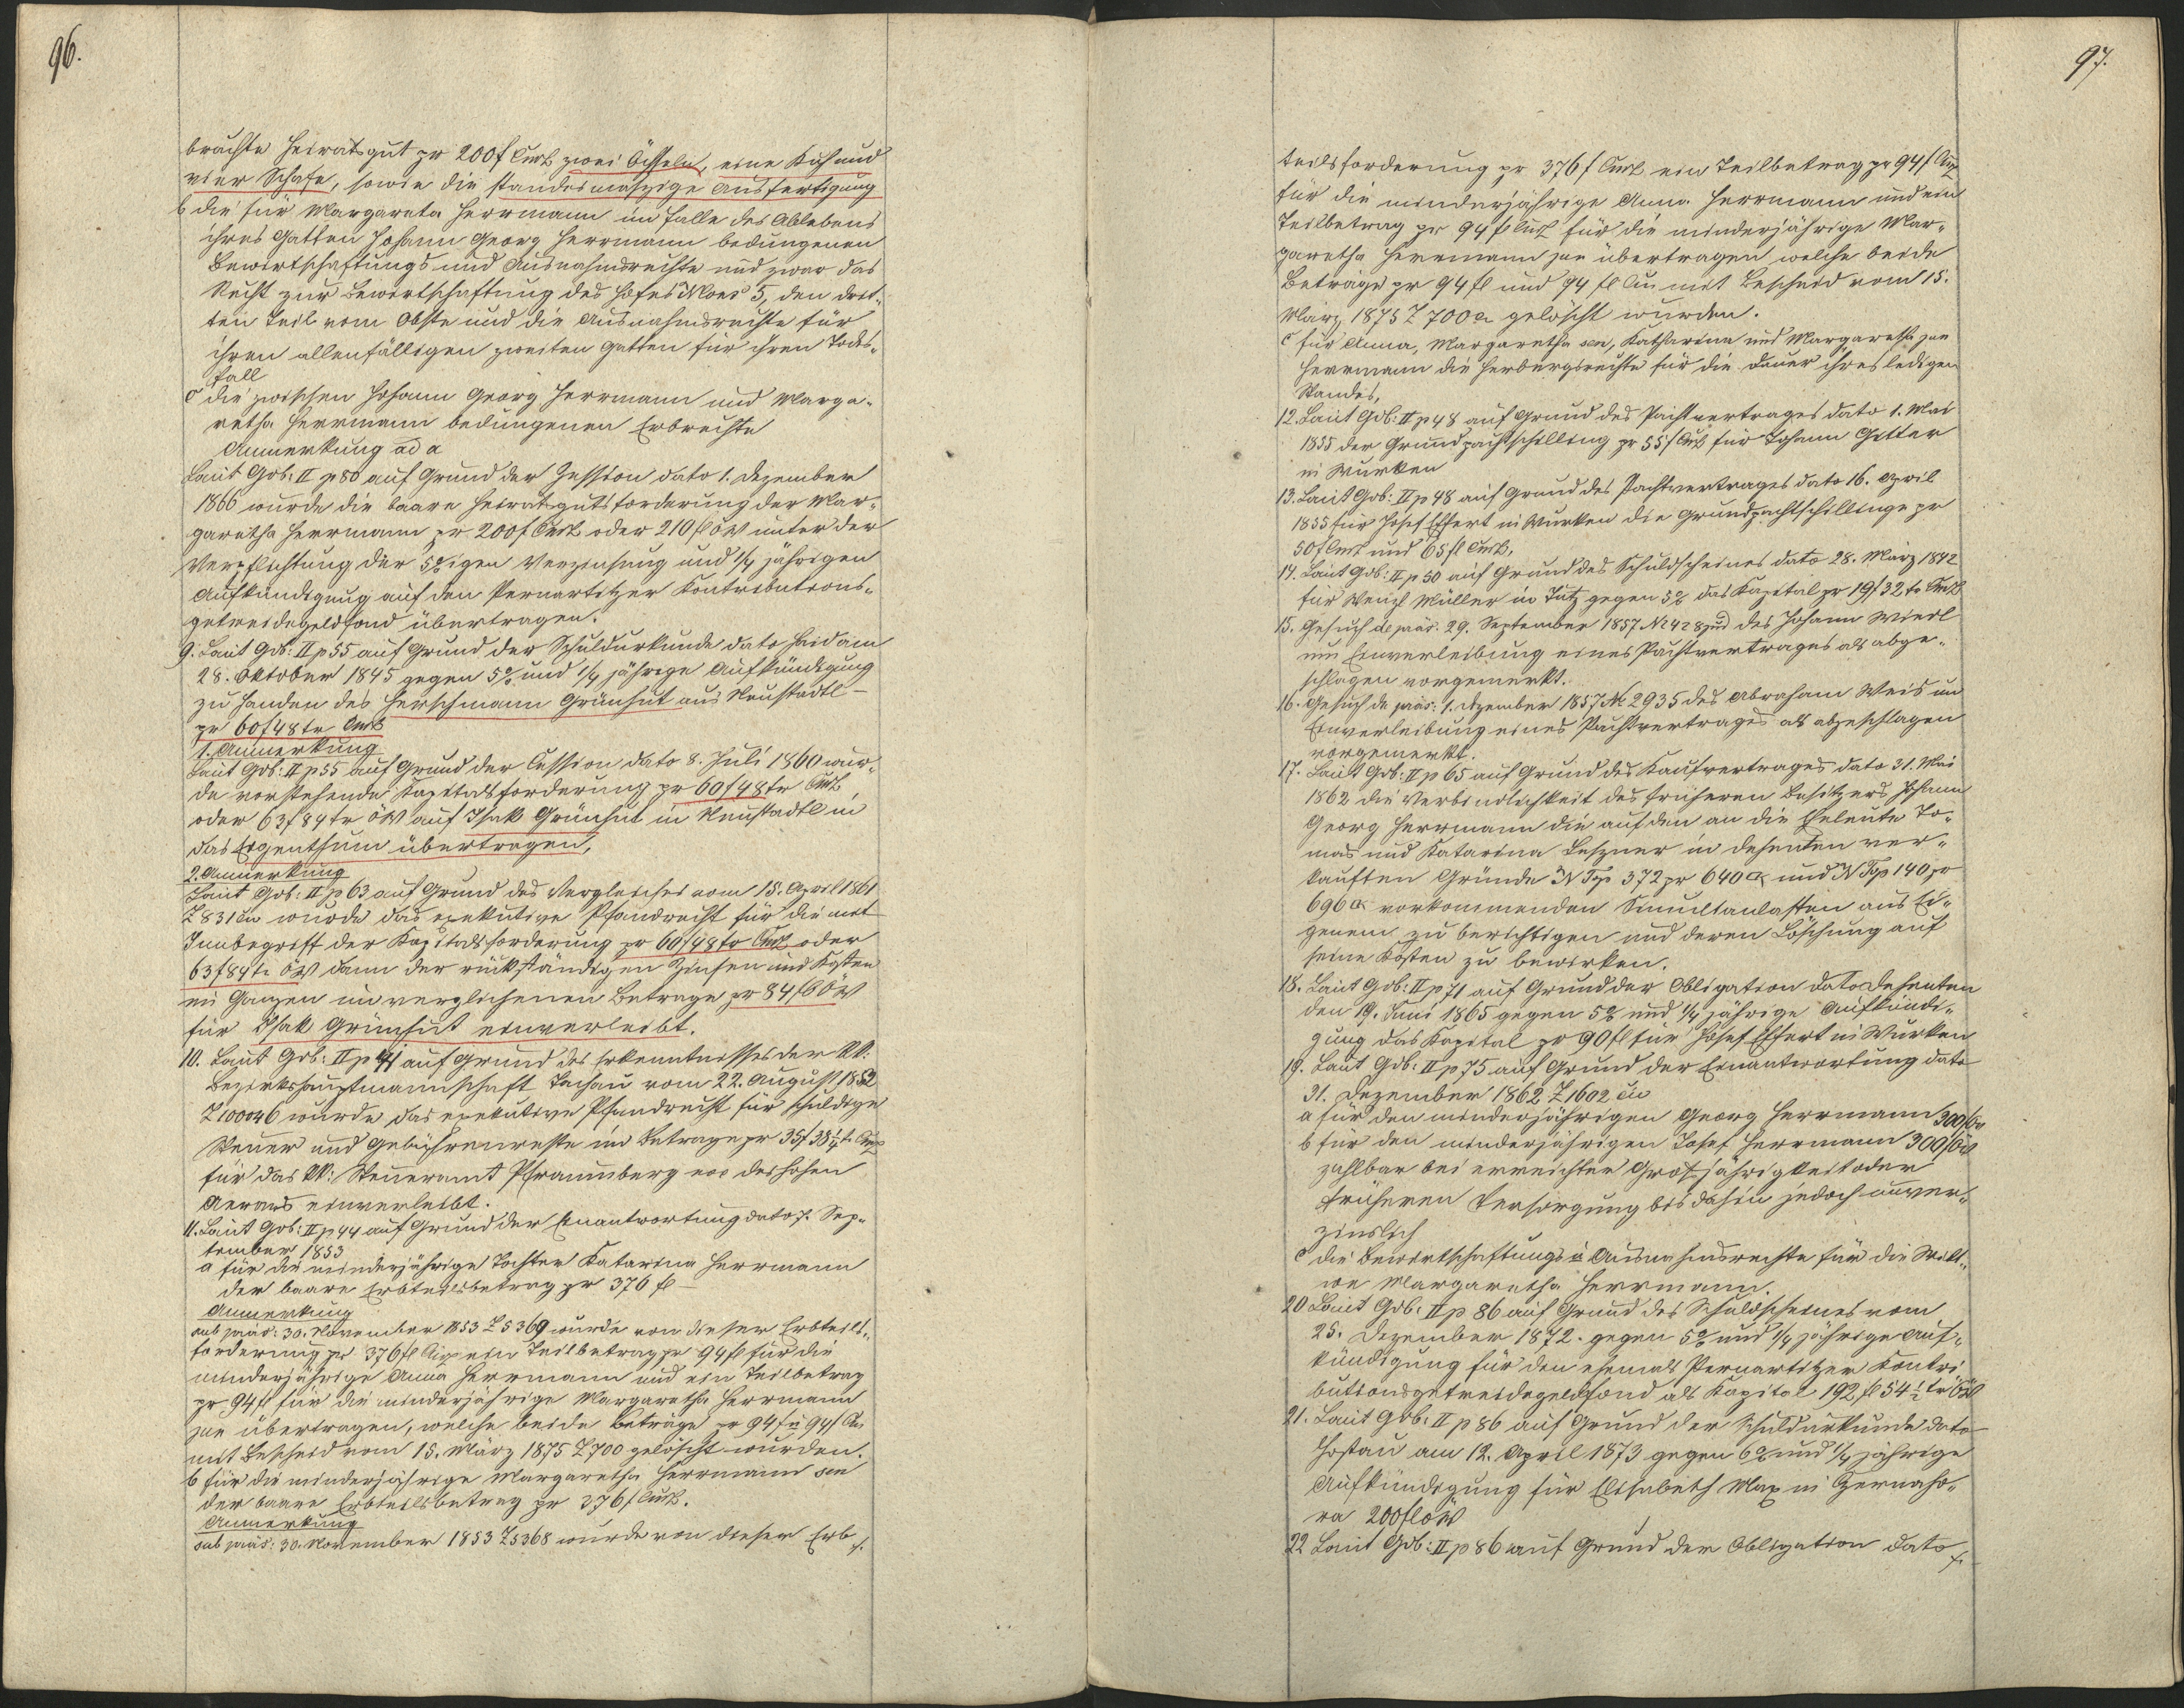 96.
brachte Heiratsgut pr 200 f CMz zwei Öchseln, eine Kuh und
vier Schafe, sowie die standesmäszige Ausfertigung
b die für Margareta Herrmann im Falle des Ablebens
ihres Gatten Johann Georg Herrmann bedungenen
Bewirtschaftungs und Ausnahmsrechte und zwar das
Recht zur Bewirtschaftung des Hofes NCons 5, den drit-
ten Teil vom Obste und die Ausnahmsrechte für
ihren allenfälligen zweiten Gatten für ihren Todes-
fall
c die zwischen Johann Georg Herrmann und Marga-
retha Herrmann bedungenen Erbrechte
Anmerkung ad a
Laut Gdb: II p 80 auf Grund der Zession dato 1. Dezember
1866 wurde die baare Heiratsgutsforderung der Mar-
garetha Herrmann pr 200 f CMz oder 210 fl öW unter der
Verpflichtung der 5%igen Verzinsung und 1/4 jährigen
Aufkündigung auf den Pernartitzer Kontributions-
getreidegeldfond übertragen.
9. Laut Gdb: II p 55 auf Grund der Schuldurkunde dato Haid am
28. Oktober 1845 gegen 5% und 1/4 jährige Aufkündigung
zu Handen des Herschmann Grünhut aus Neustadtl
pr 60 f 48 kr CMz
1. Anmerkung
Laut Gdb: II p 55 auf Grund der Cession dato 8. Juli 1860 wur-
de vorstehende Kapitalsforderung pr 60 f 48 kr CMz
oder 63 f 84 kr öW auf Isak Grünhut in Neustadtl in
das Eigenthum übertragen,
2. Anmerkung
Laut Gdb: II p 63 auf Grund des Vergleiches vom 15. April 1861
Z 831 civ wurde das exekutive Pfandrecht für die mit
Innbegriff der Kapitalsforderung pr 60 f 48 kr CMz oder
63 f 84 kr öW dann der rückständigen Zinsen und Kosten
im Ganzen im verglichenen Betrage pr 84 fl öW
für Isak Grünhut einverleibt.
10. Laut Gdb: II p 41 auf Grund des Erkenntnisses der kk.
Bezirkshauptmannschaft Tachau vom 22. August 1852
Z 10046 wurde das exekutive Pfandrecht für schuldige
Steuer und Gebührenreste im Betrage pr 35 f 38 1/4 kr CMz
für das kk: Steueramt Pfraumberg noe des hohen
Aerars einverleibt.
11. Laut Gdb: II p 44 auf Grund der Einantwortung dato 7. Sep-
tember 1853
a für die minderjährige Tochter Katarina Herrmann
der baare Erbteilsbetrag pr 376 fl
Anmerkung
sub präs: 30. November 1853 Z 5369 wurde von dieser Erbteils-
forderung pr 376 fl CMz ein Teilbetrag pr 94 fl für die
minderjährige Anna Herrmann und ein Teilbetrag
pr 94 fl für die minderjährige Margaretha Herrmann
jun übertragen, welche beide Beträge pr 94 f u 94 f CM
mit Bescheid vom 15. März 1875 Z 700 gelöscht wurden.
b für die minderjährige Margaretha Herrmann sen
der baare Erbteilsbetrag pr 376 f CMz.
Anmerkung
sub präs: 30. November 1853 Z 5368 wurde von dieser Erb-
97.
teilsforderung pr 376 f CMz ein Teilbetrag pr 94 f CMz
für die minderjährige Anna Herrmann und ein
Teilbetrag pr 94 fl CMz für die minderjährige Mar-
garetha Herrmann jun übertragen welche beide
Beträge pr 94 fl und 94 fl CM mit Bescheid vom 15.
März 1875 Z 700 gelöscht wurden.
c für Anna, Margaretha sen, Katharina und Margaretha jun
Herrmann die Herbergsrechte für die Dauer ihres ledigen
Standes,
12. Laut Gdb: II p 48 auf Grund des Pachtvertrages dato 1. Mai
1855 der Grundpachtschilling pr 55 f CMz für Johann Götter
in Wurken
13. Laut Gdb: II p 48 auf Grund des Pachtvertrages dato 16. April
1855 für Josef Effert in Wurken die Grundpachtschillinge pr
50 f CMz und 65 fl CMz,
14. Laut Gdb: II p 50 auf Grund des Schuldscheines dato 28. März 1842
für Wenzl Müller in Tutz gegen 5% das Kapital pr 19 f 32 kr CMz
15. Gesuch de präs. 29. September 1857 N 428 jud des Johann Wierl
um Einverleibung eines Pachtvertrages als abge-
schlagen vorgemerkt.
16. Gesuch de präs: 1. Dezember 1857 N 2935 des Abraham Weis um
Einverleibung eines Pachtvertrages als abgeschlagen
vorgemerkt.
17. Laut Gdb: II p 65 auf Grund des Kaufvertrages dato 31. Mai
1862 die Verbindlichkeit des früheren Besitzers Johann
Georg Herrmann die auf den an die Eheleute To-
mas und Katarina Leszner in Dehenten ver-
kauften Gründe N Top 372 pr 640 □° und N Top 140 pr
696 □° vorkommenden Simultanlasten aus Ei-
genem zu berichtigen und deren Löschung auf
seine Kosten zu bewirken.
18. Laut Gdb: II p 71 auf Grund der Obligation dato Dehenten
den 19. Juni 1865 gegen 5% und 1/4 jährige Aufkündi-
gung das Kapital pr 90 fl für Josef Effert in Wurken
19. Laut Gdb: II p 75 auf Grund der Einantwortung dato
31. Dezember 1862 Z 1602 civ
a für den minderjährigen Georg Herrmann 300 f öW
b für den minderjährigen Josef Herrmann 300 f öW
zahlbar bei erreichter Groszjährigkeit oder
früheren Versorgung bis dahin jedoch unver-
zinslich
c die Bewirtschaftungs u Ausnahmsrechte für die Wit-
we Margaretha Herrmann.
20 Laut Gdb: II p 86 auf Grund des Schuldscheines vom
25. Dezember 1872. gegen 5% und 1/4 jährige Auf-
kündigung für den ehemals Pernartitzer Kontri
butionsgetreidegeldfond als Kapital 192 fl 54 1/2 kr öW
21. Laut Gdb: II p 86 auf Grund der Schuldurkunde dato
Hostau am 12. April 1873 gegen 6% und 1/4 jährige
Aufkündigung für Elisabeth Max in Zernaho-
ra 200 fl öW
22 Laut Gdb: II p 86 auf Grund der Obligation dato